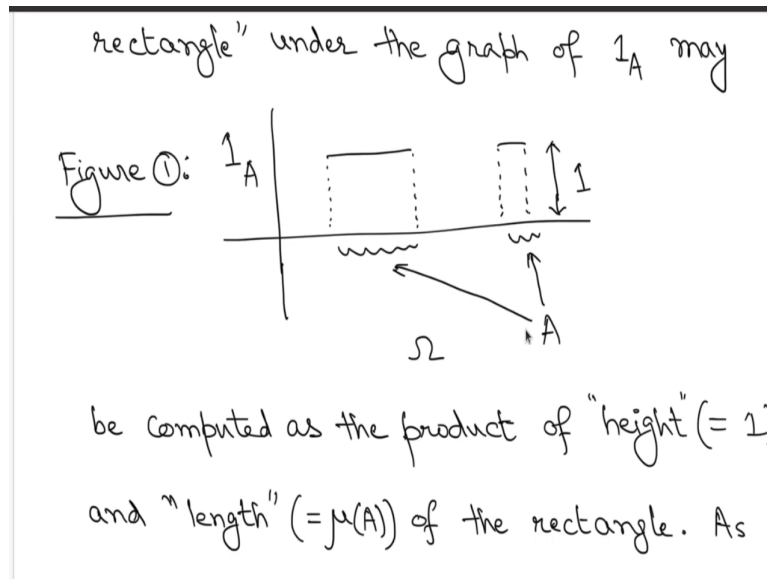 rectangle" under the graph of 1_A may
Figure ①: 1_A
1
A
Ω
be computed as the product of "height" (= 1)
and "length" (= μ(A)) of the rectangle. As